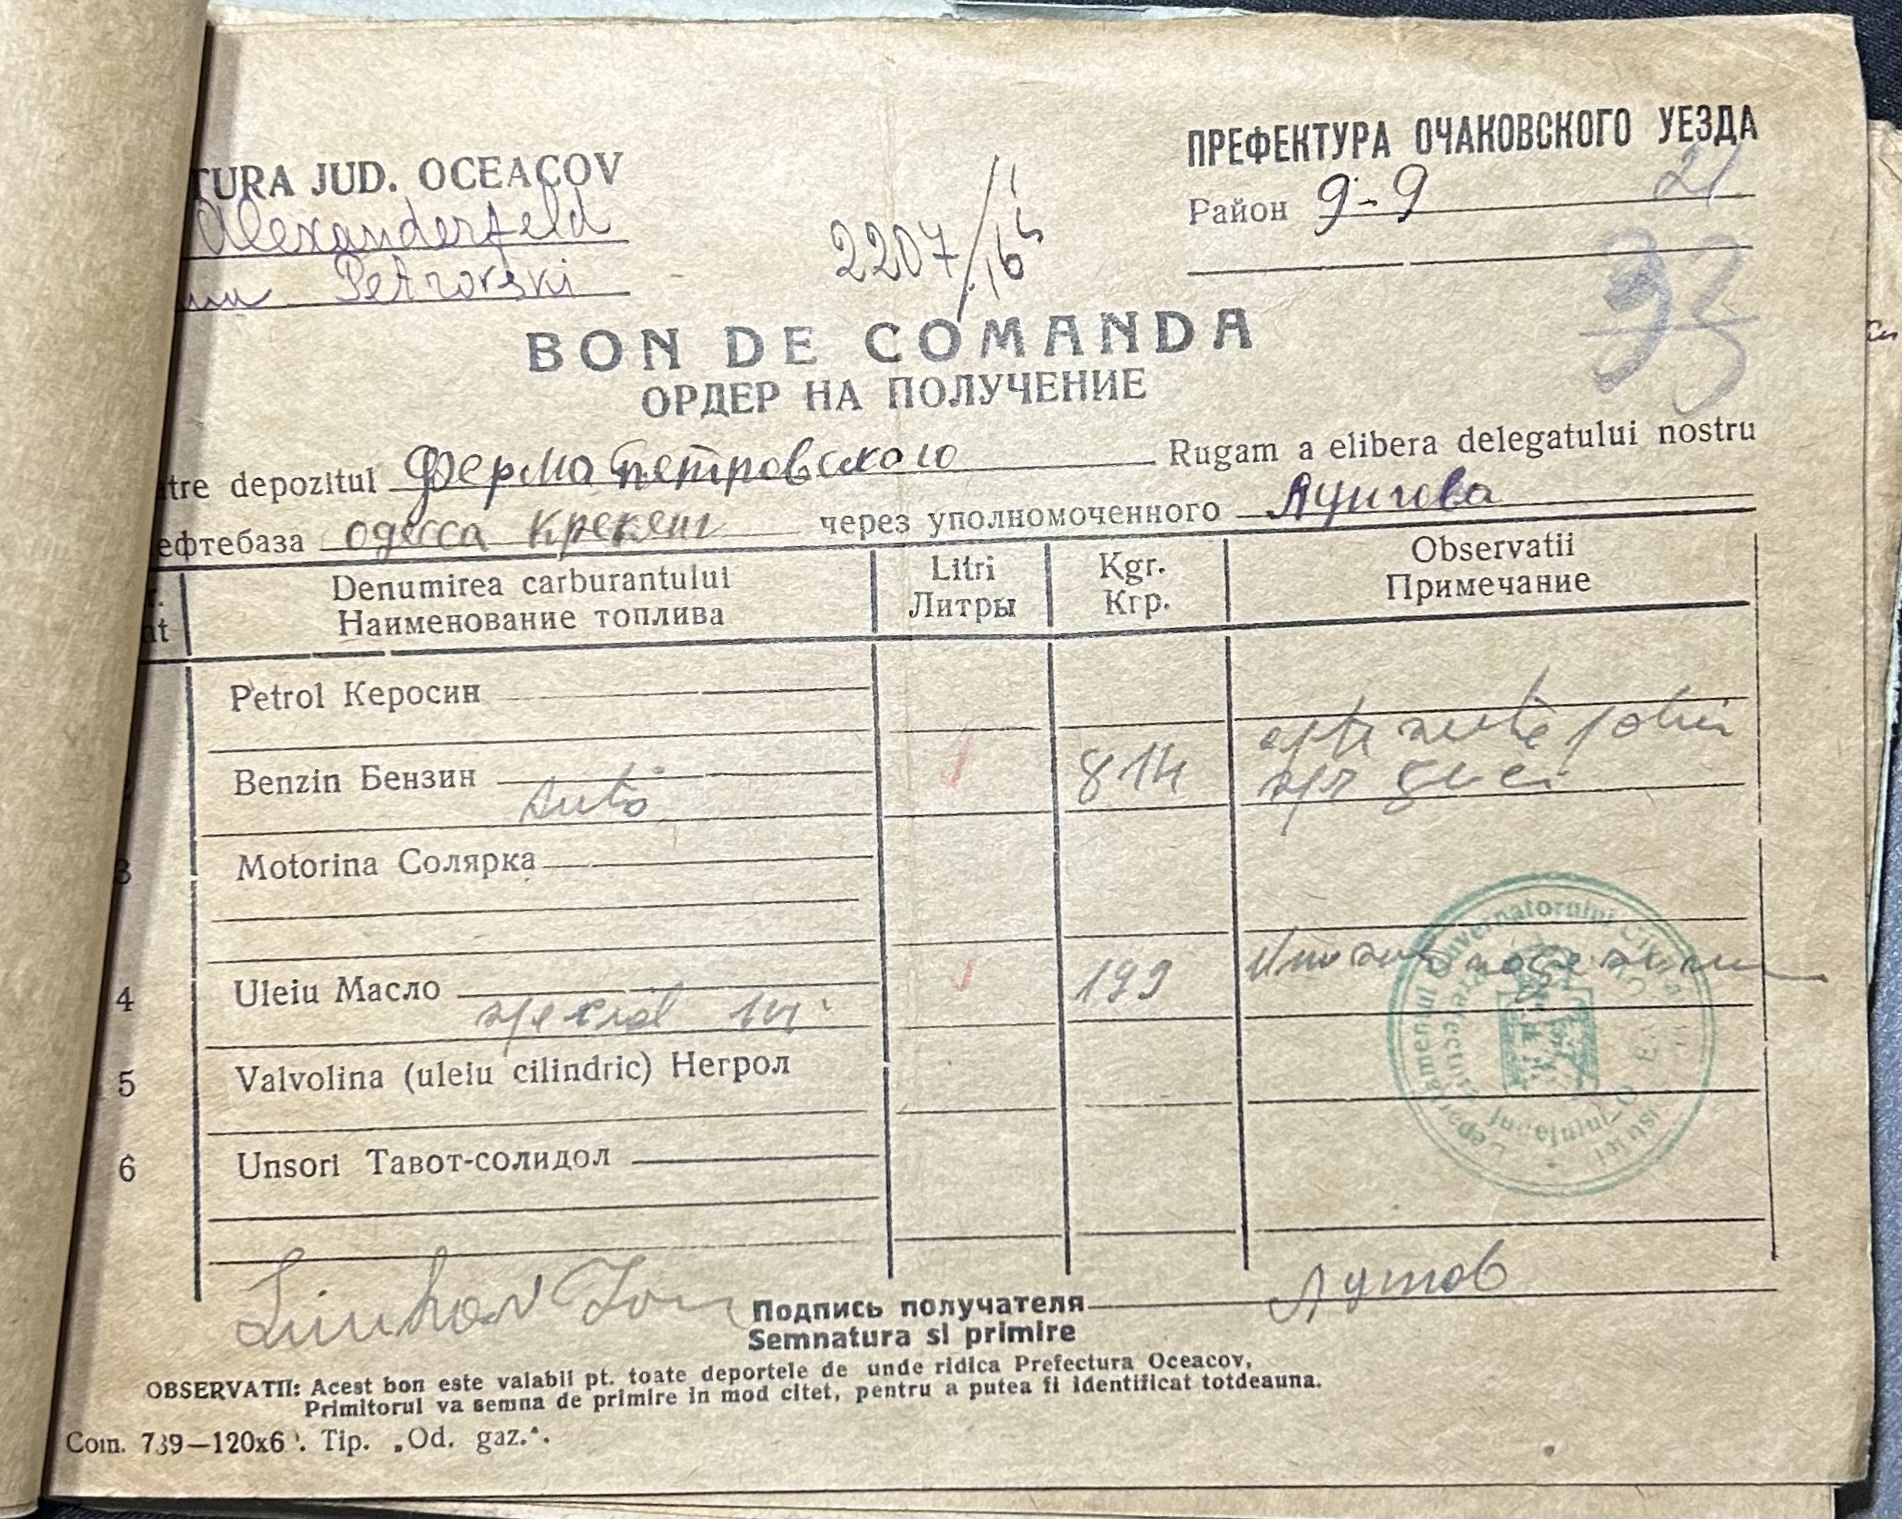 TURA JUD. OCEACOV
Alexanderfeld
Petrovski
2207/
ПРЕФЕКТУРА ОЧАКОВСКОГО УЕЗДА
Район 9-9 21
BON DE COMANDA
ОРДЕР НА ПОЛУЧЕНИЕ
tre depozitul Ферма Петровского Rugam a elibera delegatului nostru
ефтебаза одесса крекенг через уполномоченного
nt Denumirea carburantului Litri Kgr. Observatii
Наименование топлива Литры Кгр. Примечание
Petrol Керосин
Benzin Бензин 814
Auto
3 Motorina Солярка
4 Uleiu Масло 199
special
5 Valvolina (uleiu cilindric) Негрол
6 Unsori Тавот-солидол
Guvernatorului Civil
Prefectura Județului
Подпись получателя
Semnatura si primire
OBSERVATII: Acest bon este valabil pt. toate deportele de unde ridica Prefectura Oceacov,
Primitorul va semna de primire in mod citet, pentru a putea fi identificat totdeauna.
Com. 739—120x6 . Tip. „Od. gaz.".